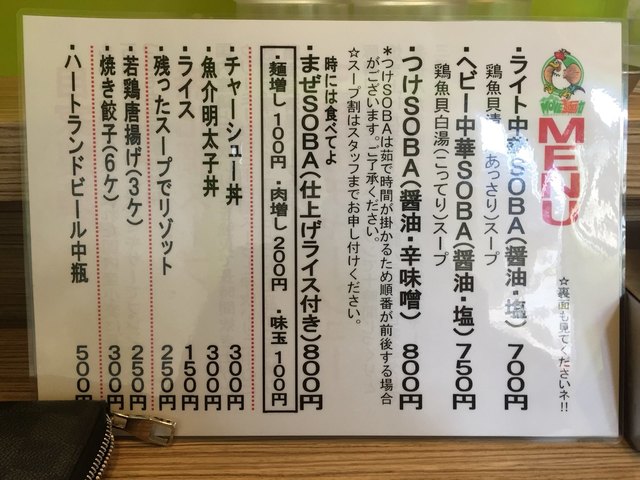 MENU
☆裏面も見てくださいネ!!
・ライト中華SOBA(醤油・塩) 700円
鶏魚貝清 (あっさり)スープ
・ヘビー中華SOBA(醤油・塩) 750円
鶏魚貝白湯(こってり)スープ
・つけSOBA(醤油・辛味噌) 800円
*つけSOBAは茹で時間が掛かるため順番が前後する場合
がございます。ご了承ください。
☆スープ割はスタッフまでお申し付けください。
時には食べてよ
・まぜSOBA(仕上げライス付き)800円
・麺増し 100円 ・肉増し 200円 ・味玉 100円
・チャーシュー丼 300円
・魚介明太子丼 300円
・ライス 150円
・残ったスープでリゾット 250円
・若鶏唐揚げ(3ケ) 250円
・焼き餃子(6ケ) 300円
・ハートランドビール中瓶 500円